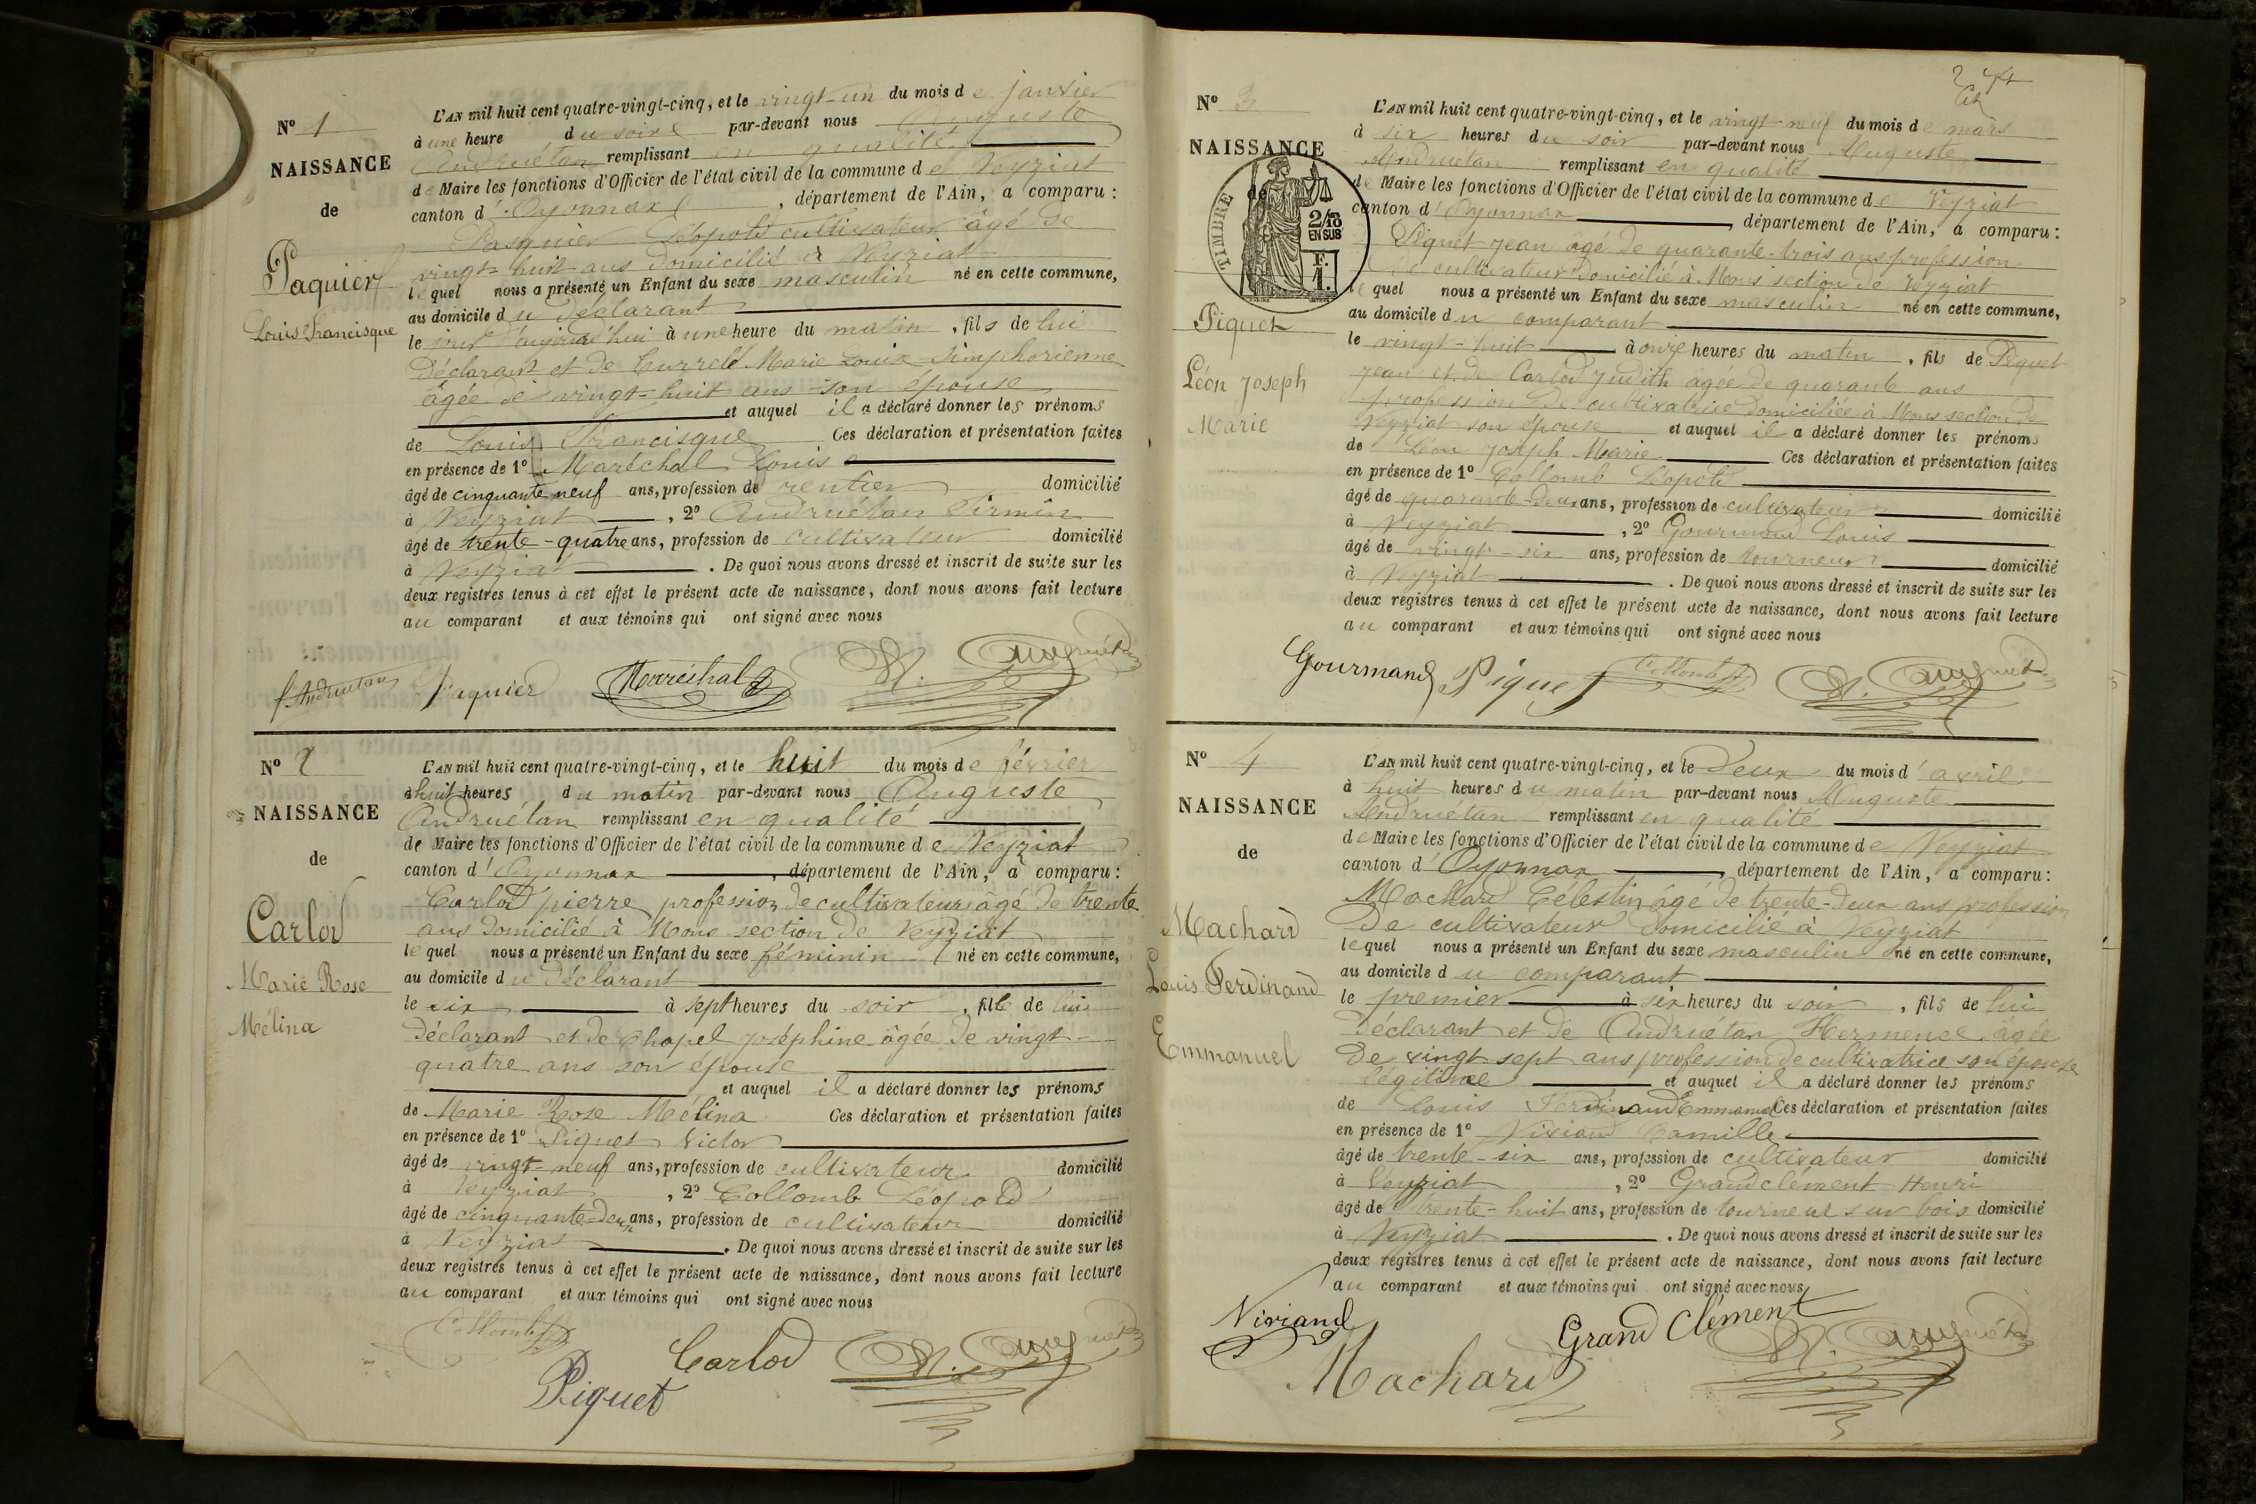 N° 1
NAISSANCE
de
Paquier
Louis Francisque
L'AN mil huit cent quatre-vingt-cinq, et le vingt-un du mois de janvier
à une heure du soir par-devant nous Auguste
Andruétan remplissant en qualité
de Maire les fonctions d'Officier de l'état civil de la commune de Veyziat
canton d'Oyonnax, département de l'Ain, a comparu :
Pasquier Léopold cultivateur âgé de
vingt-huit ans domicilié à Veyziat
lequel nous a présenté un Enfant du sexe masculin né en cette commune,
au domicile du déclarant
le aujourd'hui à une heure du matin, fils de lui
déclarant et de Marie Louise Simphorienne
âgée de vingt-huit ans son épouse
et auquel il a déclaré donner les prénoms
de Louis Francisque Ces déclaration et présentation faites
en présence de 1° Maréchal Louis
âgé de cinquante neuf ans, profession de rentier domicilié
à Veyziat, 2° Andruétan Firmin
âgé de trente-quatre ans, profession de cultivateur domicilié
à Veyziat. De quoi nous avons dressé et inscrit de suite sur les
deux registres tenus à cet effet le présent acte de naissance, dont nous avons fait lecture
au comparant et aux témoins qui ont signé avec nous
f Andruétan Paquier Maréchal A. Andruétan
N° 2
NAISSANCE
de
Carlod
Marie Rose
Mélina
L'AN mil huit cent quatre-vingt-cinq, et le huit du mois de février
à huit heures du matin par-devant nous Auguste
Andruétan remplissant en qualité
de Maire les fonctions d'Officier de l'état civil de la commune de Veyziat
canton d'Oyonnax, département de l'Ain, a comparu :
Carlod pierre profession de cultivateur âgé de trente
ans domicilié à Mons section de Veyziat
lequel nous a présenté un Enfant du sexe féminin né en cette commune,
au domicile du déclarant
le six à sept heures du soir, fille de lui
déclarant et de Chapel joséphine âgée de vingt-
quatre ans son épouse
et auquel il a déclaré donner les prénoms
de Marie Rose Mélina Ces déclaration et présentation faites
en présence de 1° Piquet Victor
âgé de vingt-neuf ans, profession de cultivateur domicilié
à Veyziat, 2° Collomb Léopold
âgé de cinquante-deux ans, profession de cultivateur domicilié
à Veyziat. De quoi nous avons dressé et inscrit de suite sur les
deux registres tenus à cet effet le présent acte de naissance, dont nous avons fait lecture
au comparant et aux témoins qui ont signé avec nous
Collomb Carlod A. Andruétan
Piquet
N° 3
NAISSANCE
de
TIMBRE
2/10
EN SUS
F.
1.
Piquet
Léon Joseph
Marie
L'AN mil huit cent quatre-vingt-cinq, et le vingt-neuf du mois de mars
à six heures du soir par-devant nous Auguste
Andruétan remplissant en qualité
de Maire les fonctions d'Officier de l'état civil de la commune de Veyziat
canton d'Oyonnax, département de l'Ain, a comparu :
Piquet jean âgé de quarante-trois ans profession
de cultivateur domicilié à Mons section de Veyziat
lequel nous a présenté un Enfant du sexe masculin né en cette commune,
au domicile du comparant
le vingt-huit à onze heures du matin, fils de Piquet
jean et de Carlod Judith âgée de quarante ans
profession de cultivatrice domiciliée à Mons section de
Veyziat son épouse et auquel il a déclaré donner les prénoms
de Léon joseph Marie Ces déclaration et présentation faites
en présence de 1° Collomb Léopold
âgé de quarante-deux ans, profession de cultivateur domicilié
à Veyziat, 2° Gourmand Louis
âgé de vingt-six ans, profession de tourneur domicilié
à Veyziat. De quoi nous avons dressé et inscrit de suite sur les
deux registres tenus à cet effet le présent acte de naissance, dont nous avons fait lecture
au comparant et aux témoins qui ont signé avec nous
Gourmand Piquet Collomb A. Andruétan
N° 4
NAISSANCE
de
Machard
Louis Ferdinand
Emmanuel
L'AN mil huit cent quatre-vingt-cinq, et le deux du mois d'avril
à huit heures du matin par-devant nous Auguste
Andruétan remplissant en qualité
de Maire les fonctions d'Officier de l'état civil de la commune de Veyziat
canton d'Oyonnax, département de l'Ain, a comparu :
Machard Célestin âgé de trente-deux ans profession
de cultivateur domicilié à Veyziat
lequel nous a présenté un Enfant du sexe masculin né en cette commune,
au domicile du comparant
le premier à six heures du soir, fils de lui
déclarant et de Andruétan Hermence âgée
de vingt sept ans profession de cultivatrice son épouse
légitime et auquel il a déclaré donner les prénoms
de Louis Ferdinand Emmanuel Ces déclaration et présentation faites
en présence de 1° Niviand Camille
âgé de trente-six ans, profession de cultivateur domicilié
à Veyziat, 2° Grandclément Henri
âgé de trente-huit ans, profession de tourneur sur bois domicilié
à Veyziat. De quoi nous avons dressé et inscrit de suite sur les
deux registres tenus à cet effet le présent acte de naissance, dont nous avons fait lecture
au comparant et aux témoins qui ont signé avec nous
Niviand Grand Clément A. Andruétan
Machard